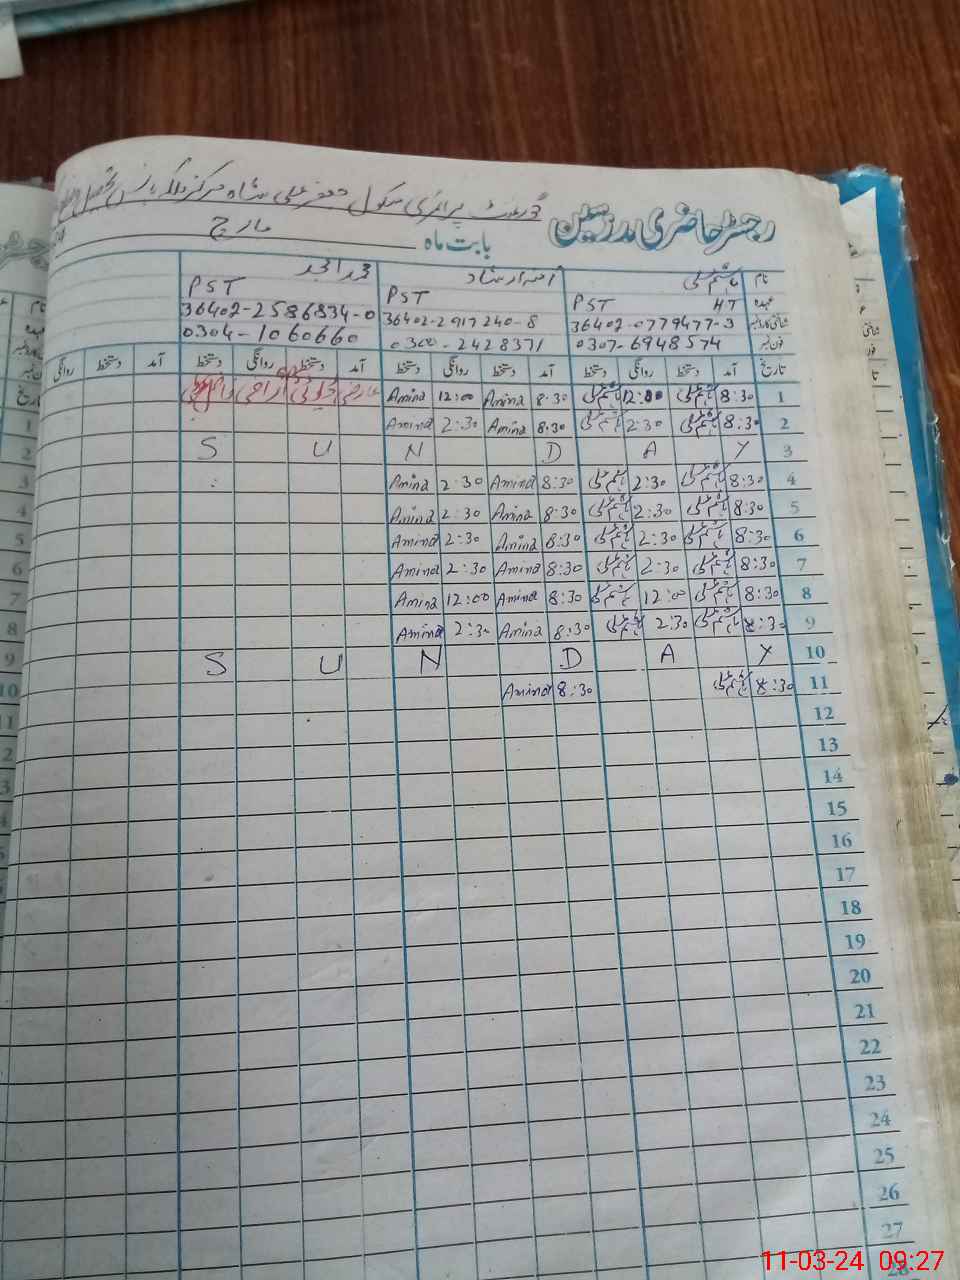 گورنمنٹ پرائمری سکول جعفر علی شاہ مرکز ملکہ ہانس تحصیل
رجسٹر حاضری مدرسین
بابت ماہ مارچ
نام ہاشم علی آمنہ ارشاد محمد امجد
عہدہ PST HT PST PST
شناختی کارڈ نمبر 36402-0779477-3 36402-2917240-8 36402-2586834-0
فون نمبر 0307-6948574 0300-2428371 0304-1060660
تاریخ آمد دستخط روانگی دستخط آمد دستخط روانگی دستخط آمد دستخط روانگی دستخط آمد دستخط روانگی
1 8:30 ہاشم علی 12:00 ہاشم علی 8:30 Amina 12:00 Amina عارضی ڈیوٹی
2 8:30 ہاشم علی 2:30 ہاشم علی 8:30 Amina 2:30 Amina
3 S U N D A Y
4 8:30 ہاشم علی 2:30 ہاشم علی 8:30 Amina 2:30 Amina
5 8:30 ہاشم علی 2:30 ہاشم علی 8:30 Amina 2:30 Amina
6 8:30 ہاشم علی 2:30 ہاشم علی 8:30 Amina 2:30 Amina
7 8:30 ہاشم علی 2:30 ہاشم علی 8:30 Amina 2:30 Amina
8 8:30 ہاشم علی 12:00 ہاشم علی 8:30 Amina 12:00 Amina
9 8:30 ہاشم علی 2:30 ہاشم علی 8:30 Amina 2:30 Amina
10 S U N D A Y
11 8:30 ہاشم علی 8:30 Amina
12
13
14
15
16
17
18
19
20
21
22
23
24
25
26
27
28
11-03-24 09:27